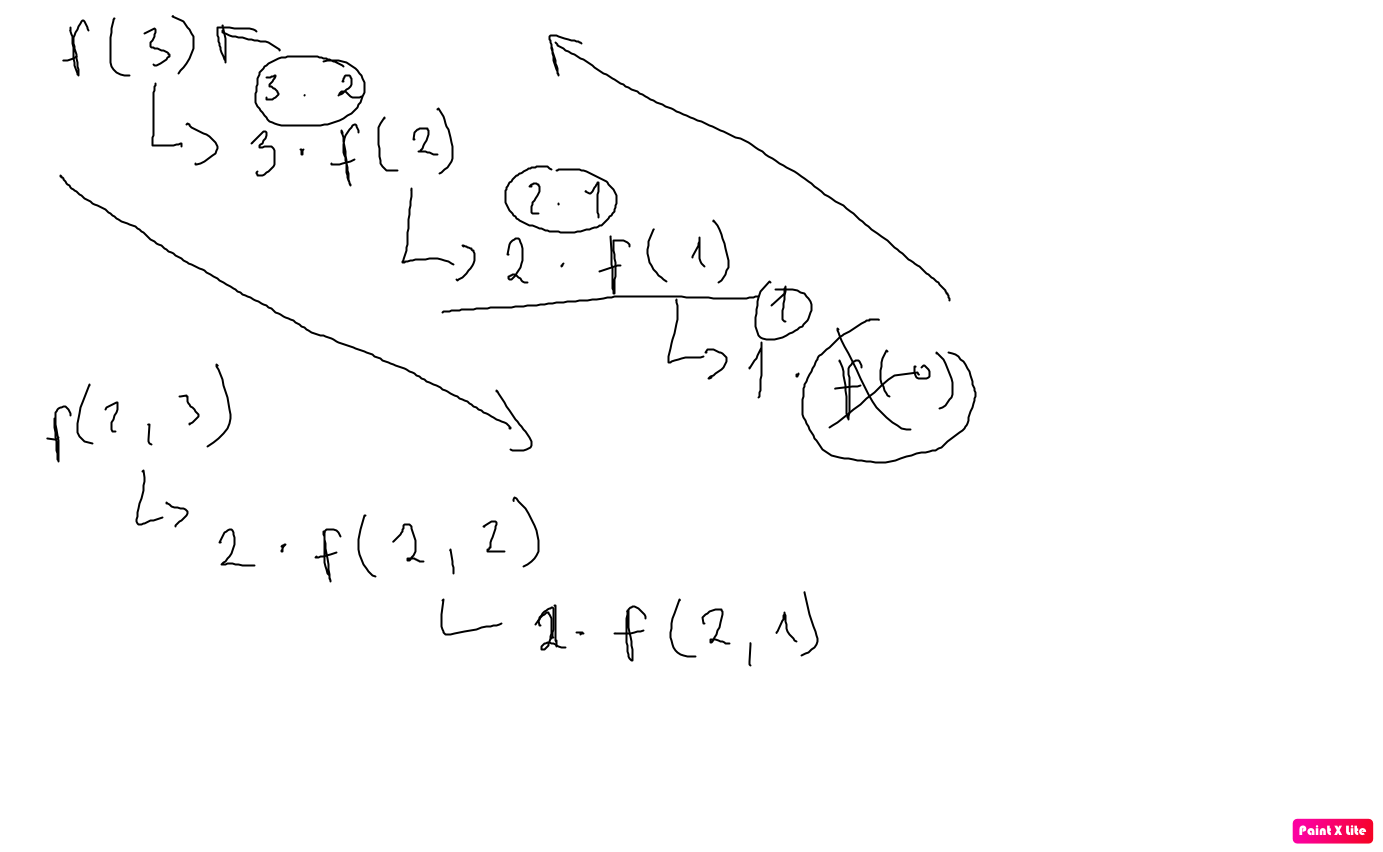 f(3)
3 . 2
3 · f(2)
2 . 1
2 . f(1)
1
1 . f(0)
f(2, 3)
2 · f(2, 2)
2 · f(2, 1)
Paint X Lite